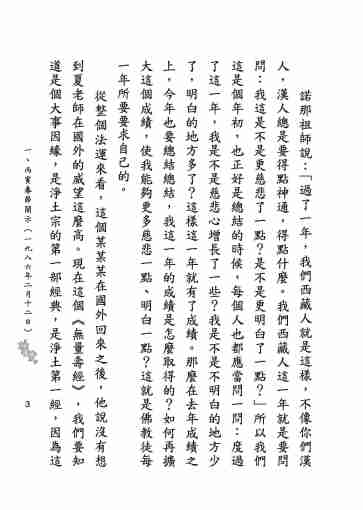 諾那祖師說：「過了一年，我們西藏人就是這樣，不像你們漢
人，漢人總是要得點神通，得點什麼。我們西藏人這一年就是要問
問：我這是不是更慈悲了一點？是不是更明白了一點？」所以我們
這是個年初，也正好是總結的時候，每個人也都應當問一問：度過
了這一年，我是不是慈悲心增長了一些？我是不是不明白的地方少
了，明白的地方多了？這樣這一年就有了成績。那麼在去年成績之
上，今年也要總結總結，我這一年的成績是怎麼取得的？如何再擴
大這個成績，使我能夠更多慈悲一點、明白一點？這就是佛教徒每
一年所要要求自己的。
從整個法運來看，這個某某某在國外回來之後，他說沒有想
到夏老師在國外的威望這麼高。現在這個《無量壽經》，我們要知
道是個大事因緣，是淨土宗的第一部經典，是淨土第一經，因為這
一、丙寅春節開示（一九八六年二月十二日）
3